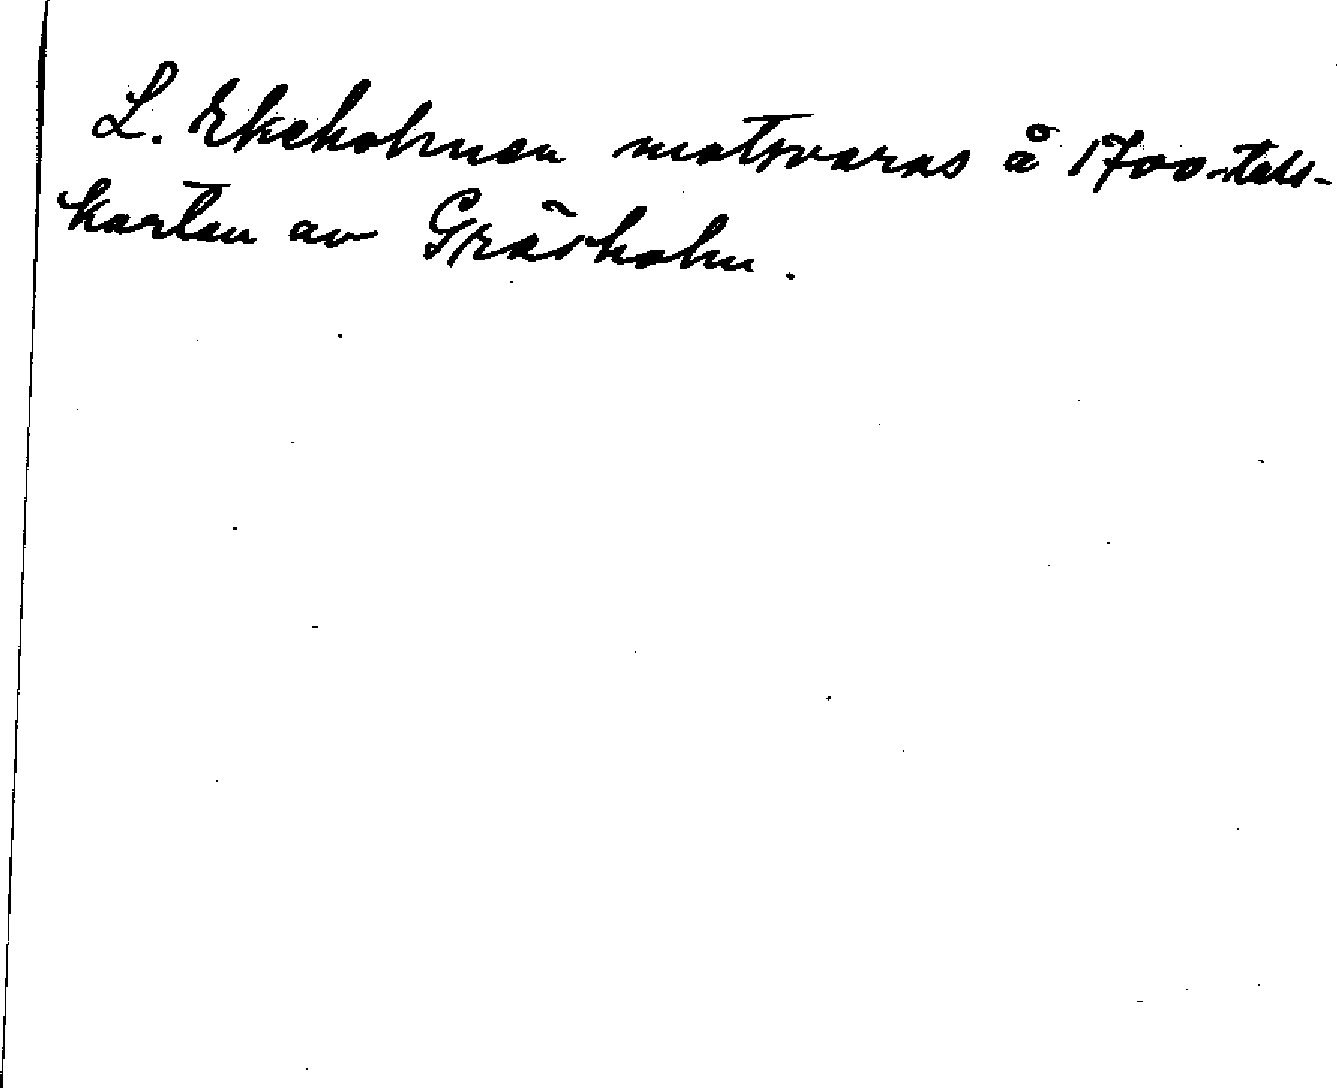 L. Ekeholmen motsvaras å 1700-tals-
kartan av Gräsholm.